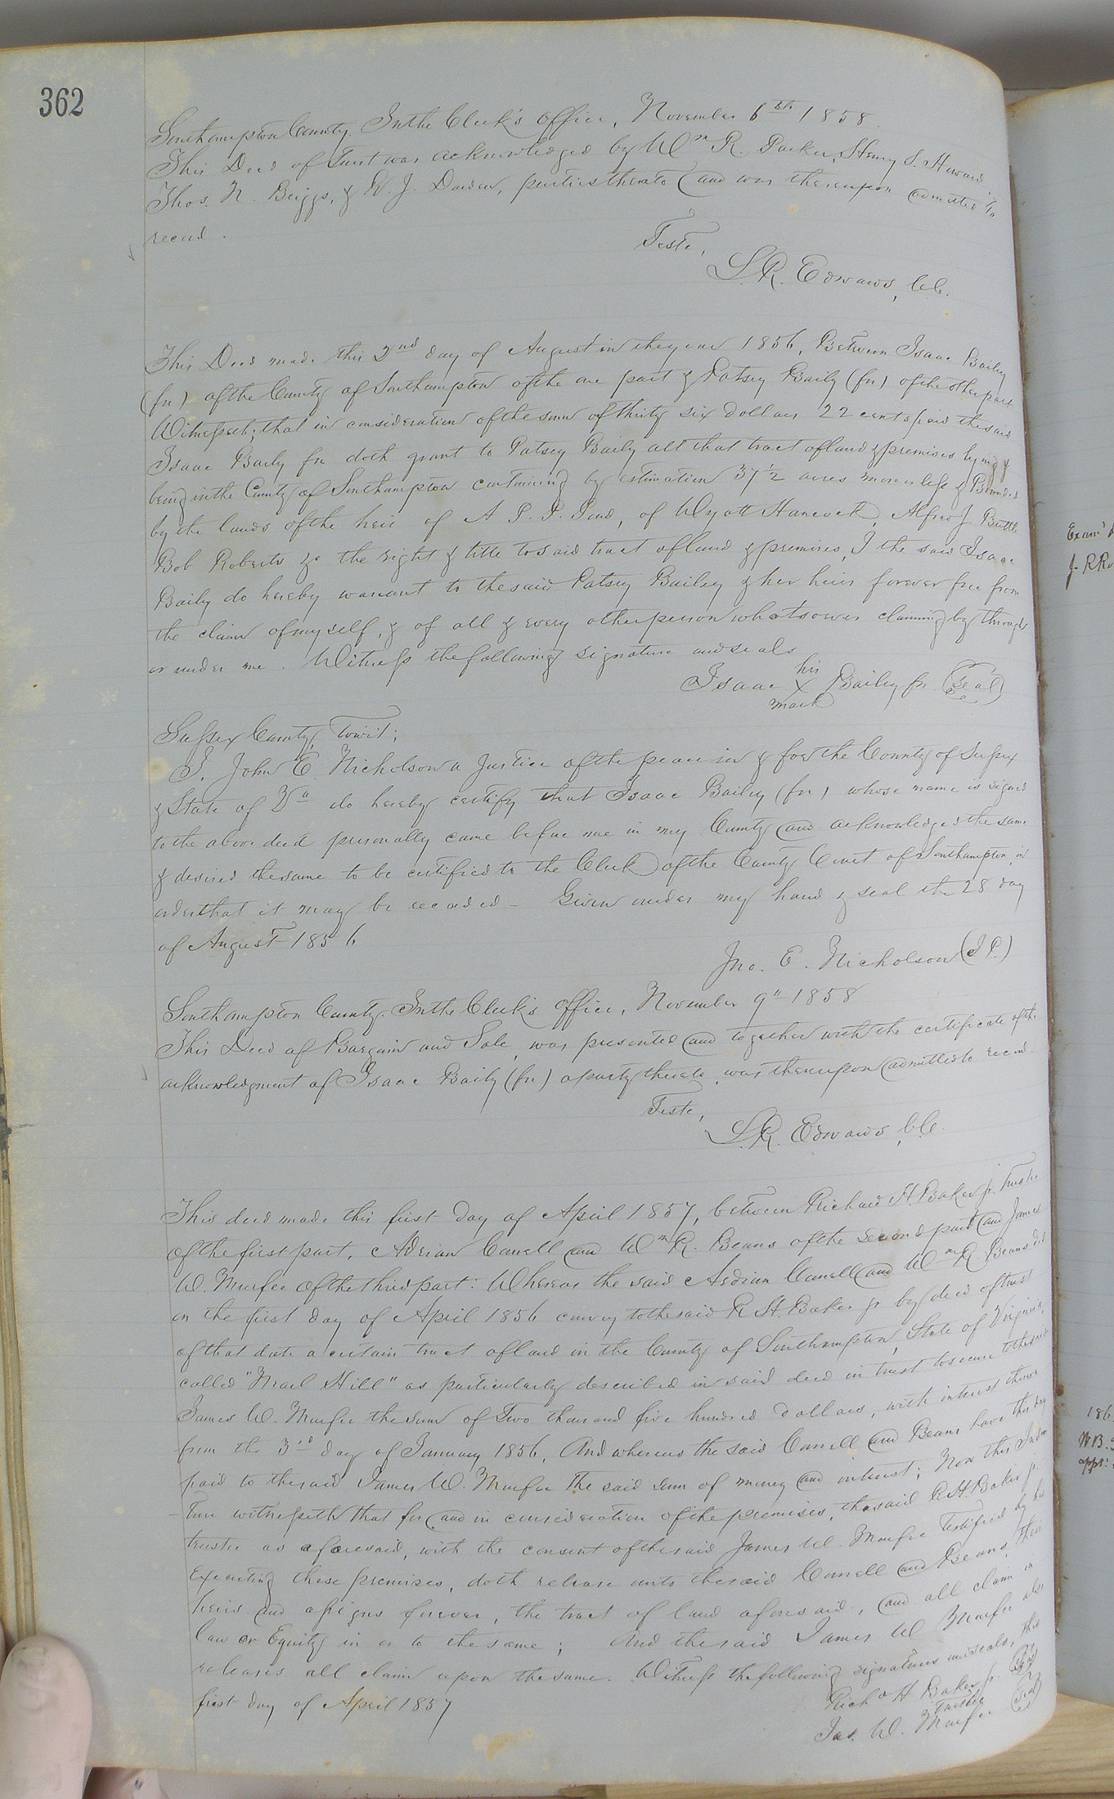 362
Southampton County. In the Clerk's office, November 6th 1858.
This Deed of Trust was acknowledged by Wm R. Parker, Henry S. Howard
Thos. N. Briggs, & E. J. Darden, parties thereto and was thereupon admitted to
record.
Teste,
L. R. Edwards, CC.
This Deed made this 2nd day of August in the year 1856, Between Isaac Bailey
(fn) of the County of Southampton of the one part & Patsey Baily (fn) of the other part
Witnesseth; that in consideration of the sum of thirty six dollars 22 cents paid the said
Isaac Baily fn doth grant to Patsey Baily all that tract of land & premises lying &
being in the County of Southampton containing by estimation 37 1/2 acres more or less & Bounded
by the lands of the heir of A P. P. of Wyatt Hancock, Alfred J. Britt
Bob Roberts &c the right & title to said tract of land & premises, I the said Isaac
Baily do hereby warrant to the said Patsey Bailey & her heirs forever free from
the claim of myself, & of all & every other person whatsoever claiming by through
or under me. Witness the following signature and seal
Isaac his X mark Bailey fn (Seal)
Sussex County, Towit;
I, John E. Nicholson a Justice of the peace in & for the County of Sussex
& State of Va do hereby certify that Isaac Bailey (fn) whose name is signed
to the above deed personally came before me in my County and acknowledged the same
& desired the same to be certified to the Clerk of the County Court of Southampton, in
order that it may be recorded - Given under my hand & seal the 28 day
of August 1856
Jno. E. Nicholson (J.P.)
Southampton County. In the Clerk's office, November 9th 1858
This Deed of Bargain and Sale, was presented and together with the certificate of the
acknowledgment of Isaac Baily (fn) a party thereto, was thereupon admitted to record.
Teste,
L. R. Edwards, CC.
This deed made this first day of April 1857, between Richard H. Baker jr. Trustee
of the first part, Adrian Carrell and Wm R. Beans of the second part and James
W. Murfee of the third part: Whereas the said Adrian Carrell and Wm R Beans did
on the first day of April 1856 convey to the said R. H. Baker jr by deed of trust
of that date a certain tract of land in the County of Southampton, State of Virginia,
called "Hill" as particularly described in said deed in trust to secure to the said
James W. Murfee the sum of Two thousand five hundred dollars, with interest thereon
from the 3rd day of January 1856, And whereas the said Carrell and Beans have this day
paid to the said James W. Murfee the said sum of money and interest; Now this Inden-
-ture witnesseth that for and in consideration of the premises, the said R. H. Baker jr.
trustee as aforesaid, with the consent of the said James W. Murfee testified by his
executing these premises, doth release unto the said Carrell and Beans, their
heirs and assigns forever, the tract of land aforesaid, and all claim in
law or Equity in or to the same; And the said James W Murfee also
releases all claim upon the same. Witness the following signatures and seals, this
first day of April 1857
Richd H Baker jr. (Seal)
Trustee
Jas. W. Murfee (Seal)